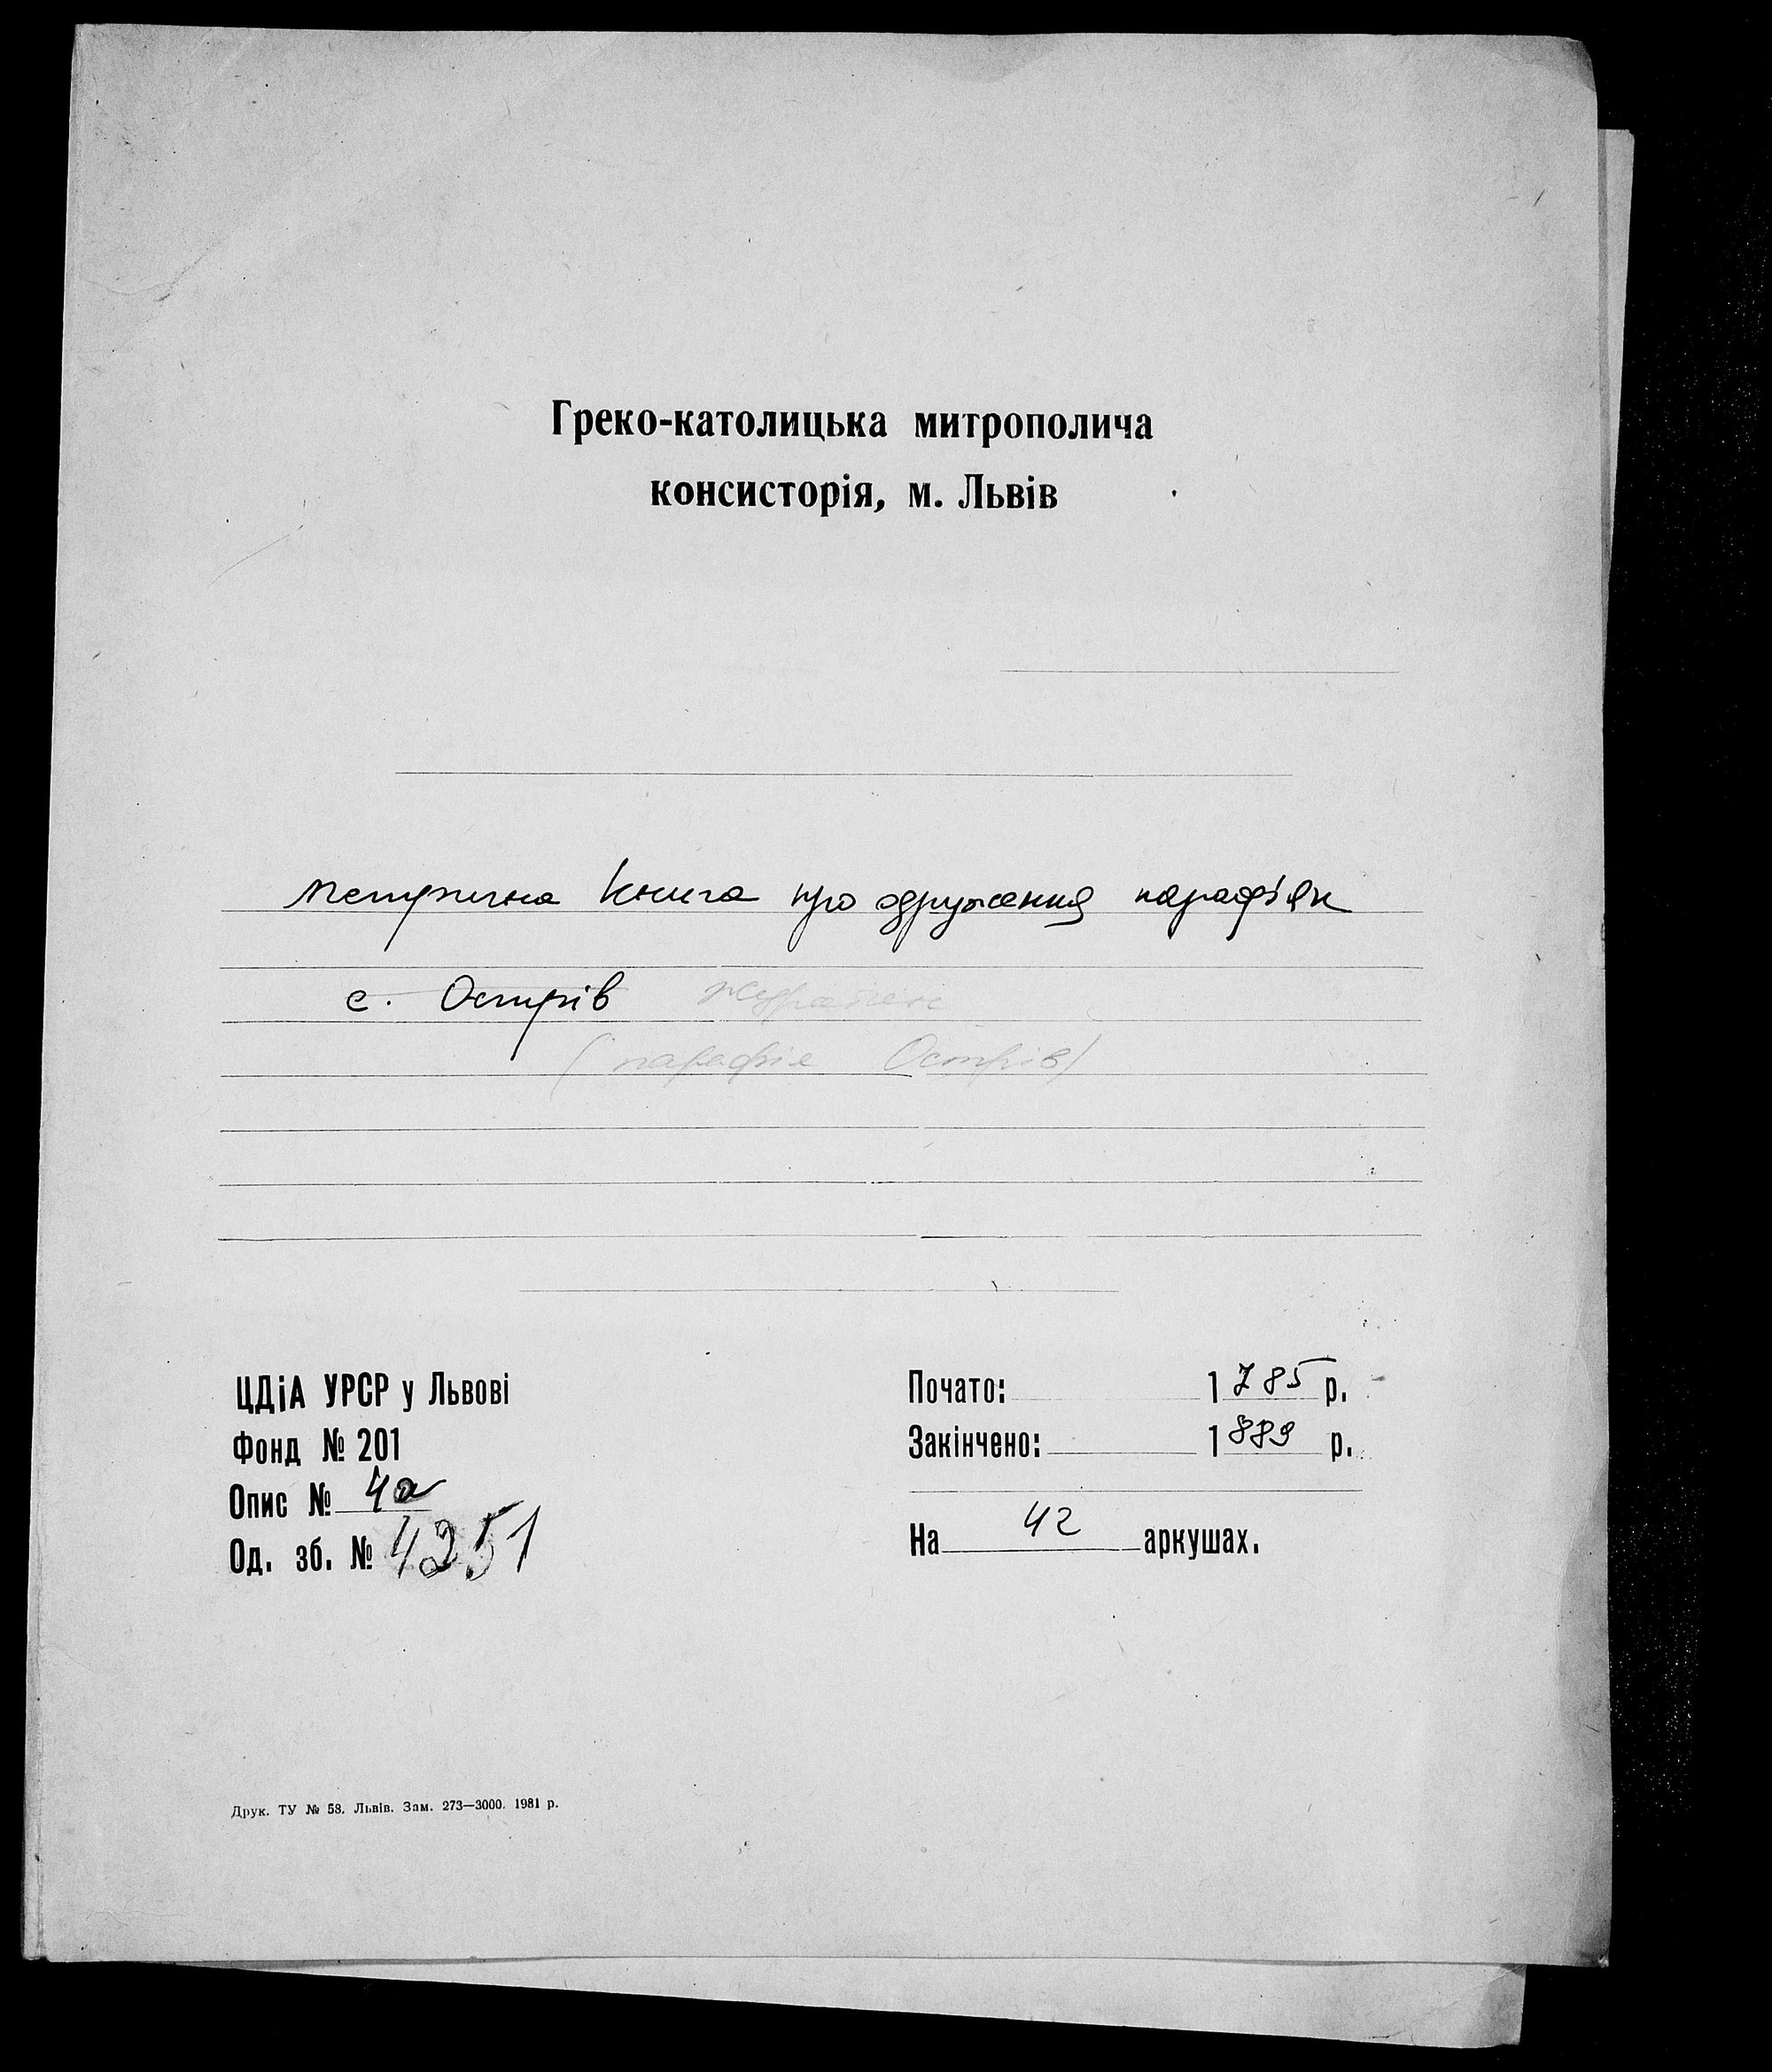 Греко-католицька митрополича
консисторія, м. Львів
метрична книга про одруження парафіян
с. Острів
(парафія Острів)
ЦДіА УРСР у Львові
Фонд № 201
Опис № 4а
Од. зб. № 4251
Почато: 1785 р.
Закінчено: 1889 р.
На 42 аркушах.
Друк. ТУ № 58. Львів. Зам. 273—3000. 1981 р.